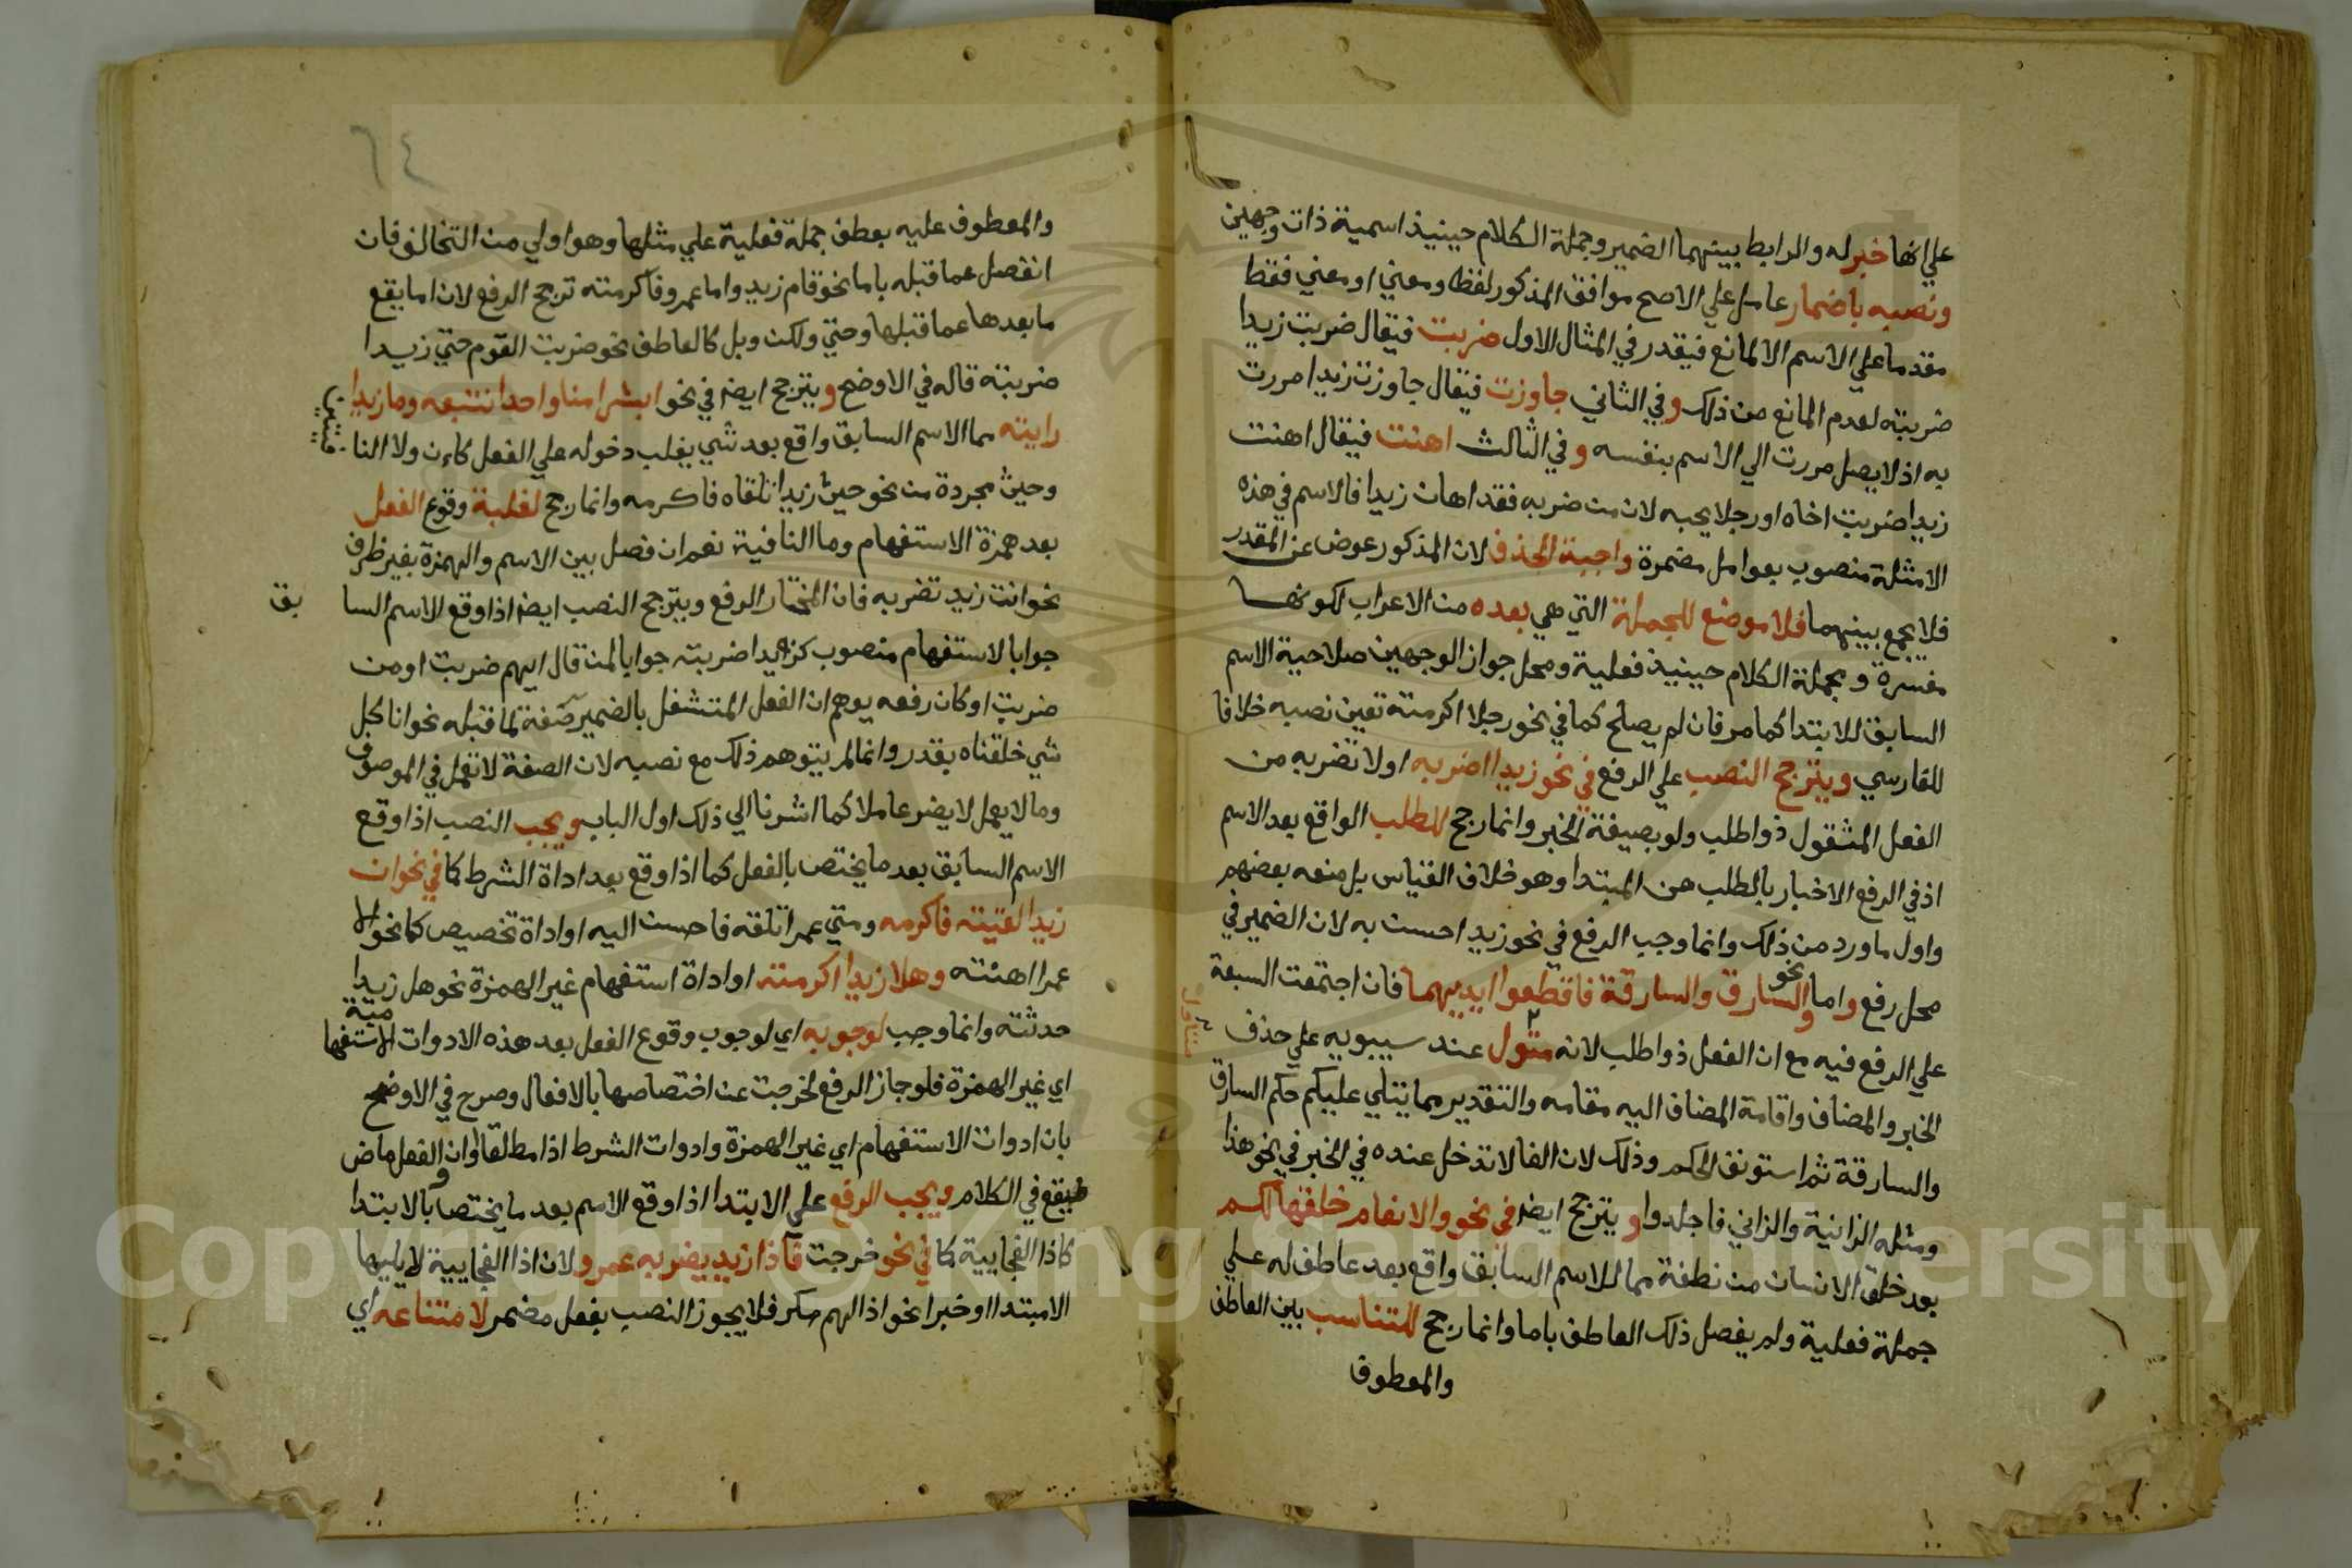 علي انها خبر له والرابط بينهما الضمير وجملة الكلام حينيذ اسمية ذات وجهين
ونصبه باضمار عامل علي الاصح موافق المذكور لفظا ومعني او معني فقط
مقدما علي الاسم الا لمانع فيقدر في المثال الاول ضربت فيقال ضربت زيدا
ضربته لعدم المانع من ذلك وفي الثاني جاوزت فيقال جاوزت زيدا مررت
به اذ لا يصل مررت الي الاسم بنفسه وفي الثالث اهنت فيقال اهنت
زيدا ضربت اخاه او رجلا يحبه لان من ضربه فقد اهان زيدا فالاسم في هذه
الامثلة منصوب بعوامل مضمرة واجبة الحذف لان المذكور عوض عن المقدر
فلا يجمع بينهما فلا موضع للجملة التي هي بعده من الاعراب لكونها
مفسرة وجملة الكلام حينيذ فعلية ومحل جواز الوجهين صلاحية الاسم
السابق للابتدا كما مر فان لم يصلح كما في نحو رجلا اكرمته تعين نصبه خلافا
للفارسي ويترجح النصب علي الرفع في نحو زيدا اضربه او لا تضربه من
الفعل المشغول ذو اطلب ولو بصيغة الخبر وانما رجح للطلب الواقع بعد الاسم
اذ في الرفع الاخبار بالطلب عن المبتدا وهو خلاف القياس بل منعه بعضهم
واول ما ورد من ذلك وانما وجب الرفع في نحو زيد احسن به لان الضمير في
محل رفع واما نحو والسارق والسارقة فاقطعوا ايديهما فان اجتمعت السبعة
علي الرفع فيه مع ان الفعل ذو اطلب لانه متول عند سيبويه علي حذف
متناول
الخبر والمضاف واقامة المضاف اليه مقامه والتقدير مما يتلي عليكم حكم السارق
والسارقة ثم استونف الحكم وذلك لان الفا لا تدخل عنده في الخبر في نحو هذا
ومثله الزانية والزاني فاجلدوا ويترجح ايضا في نحو والانعام خلقها لكم
بعد خلق الانسان من نطفة مما للاسم السابق واقع بعد عاطف له علي
جملة فعلية ولم يفصل ذلك العاطف باما وانما رجح للتناسب بين العاطف
والمعطوف
٦٤
والمعطوف عليه بعطف جملة فعلية علي مثلها وهو اولي من التخالف فان
انفصل عما قبله باما نحو قام زيد واما عمرو فاكرمته ترجح الرفع لان اما يقع
ما بعدها عما قبلها وحتي ولكن وبل كالعاطف نحو ضربت القوم حتي زيدا
ضربته قاله في الاوضح ويترجح ايضا في نحو ابشرا منا واحدا نتبعه وما زيدا
رايته مما الاسم السابق واقع بعد شي يغلب دخوله علي الفعل كان ولا النا
وحيث مجردة من نحو حيث زيدا تلقاه فاكرمه وانما رجح لغلبة وقوع الفعل
بعد همزة الاستفهام وما النافية نعم ان فصل بين الاسم والهمزة بغير ظرف
نحو انت زيد تضربه فان المختار الرفع ويترجح النصب ايضا اذا وقع الاسم السا بق
جوابا لاستفهام منصوب كزيدا ضربته جوابا لمن قال ايهم ضربت او من
ضربت او كان رفعه يوهم ان الفعل المتشغل بالضمير صفة لما قبله نحو انا كل
شي خلقناه بقدر وانما لم يتوهم ذلك مع نصبه لان الصفة لا تعمل في الموصوف
وما لا يعمل لا يضر عاملا كما اشرنا الي ذلك اول الباب ويجب النصب اذا وقع
الاسم السابق بعد ما يختص بالفعل كما اذا وقع بعد اداة الشرط كما في نحو ان
زيدا لقيته فاكرمه ومتي عمرا تلقه فاحسن اليه او اداة تخصيص كما نحو الا
عمرا اهنته وهلا زيدا اكرمته او اداة استفهام غير الهمزة نحو هل زيدا
حدثته وانما وجب لوجوبه اي لوجوب وقوع الفعل بعد هذه الادوات الاستفها مية
اي غير الهمزة فلو جاز الرفع لخرجت عن اختصاصها بالافعال وصرح في الاوضح
بان ادوات الاستفهام اي غير الهمزة وادوات الشرط اذا مطلقا وان والفعل ماض
فيقع في الكلام ويجب الرفع علي الابتدا اذا وقع الاسم بعد ما يختص بالابتدا
كاذا الفجايية كما في نحو خرجت فاذا زيد يضربه عمرو لان اذا الفجايية لا يليها
الامبتدا او خبرا نحو اذا لهم مكر فلا يجوز النصب بفعل مضمر لامتناعه اي
Copyright © King Saud University